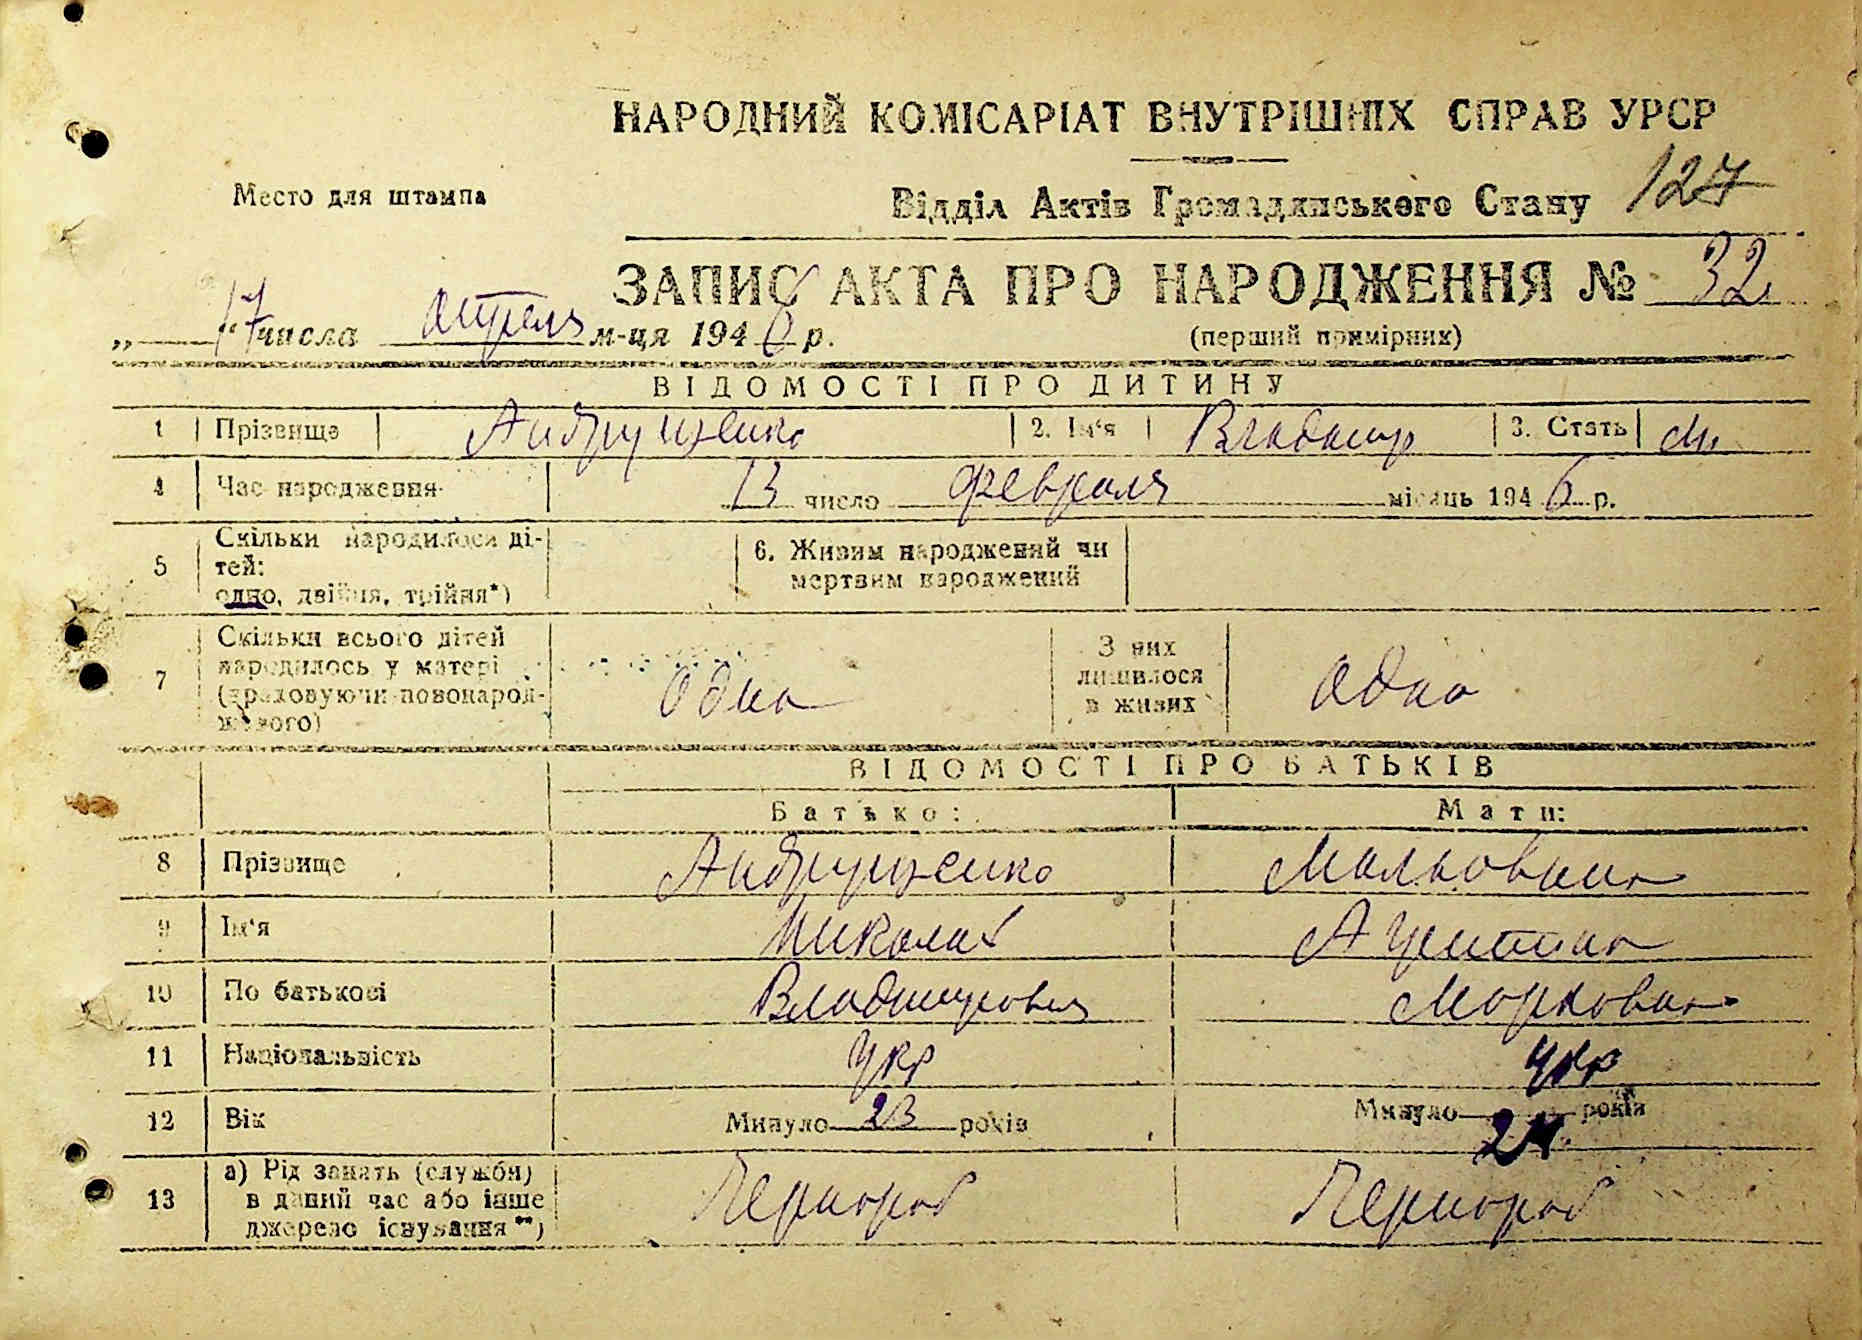 НАРОДНИЙ КОМІСАРІАТ ВНУТРІШНІХ СПРАВ УРСР
Место для штампа
Відділ Актів Громадянського Стану 127
ЗАПИС АКТА ПРО НАРОДЖЕННЯ № 32
„ 17 числа апреля м-ця 1946 р.
(перший примірник)
ВІДОМОСТІ ПРО ДИТИНУ
1 Прізвище Андрущенко 2. Ім'я Владимир 3. Стать м.
4 Час народження 13 число февраля місяць 1946 р.
5 Скільки народилося ді-
тей:
одно, двійня, трійня*)
6. Живим народжений чи
мертвим народжений
7 Скільки всього дітей
народилось у матері
(враховуючи новонарод-
женого)
Одна
З них
лишилося
в живих
Одна
ВІДОМОСТІ ПРО БАТЬКІВ
Батько: Мати:
8 Прізвище Андрущенко
9 Ім'я Николай
10 По батькові Владимирович Марковна
11 Національність Укр Укр
12 Вік Минуло 23 років Минуло 24 років
13 а) Рід занять (служби)
в даний час або інше
джерело існування**)